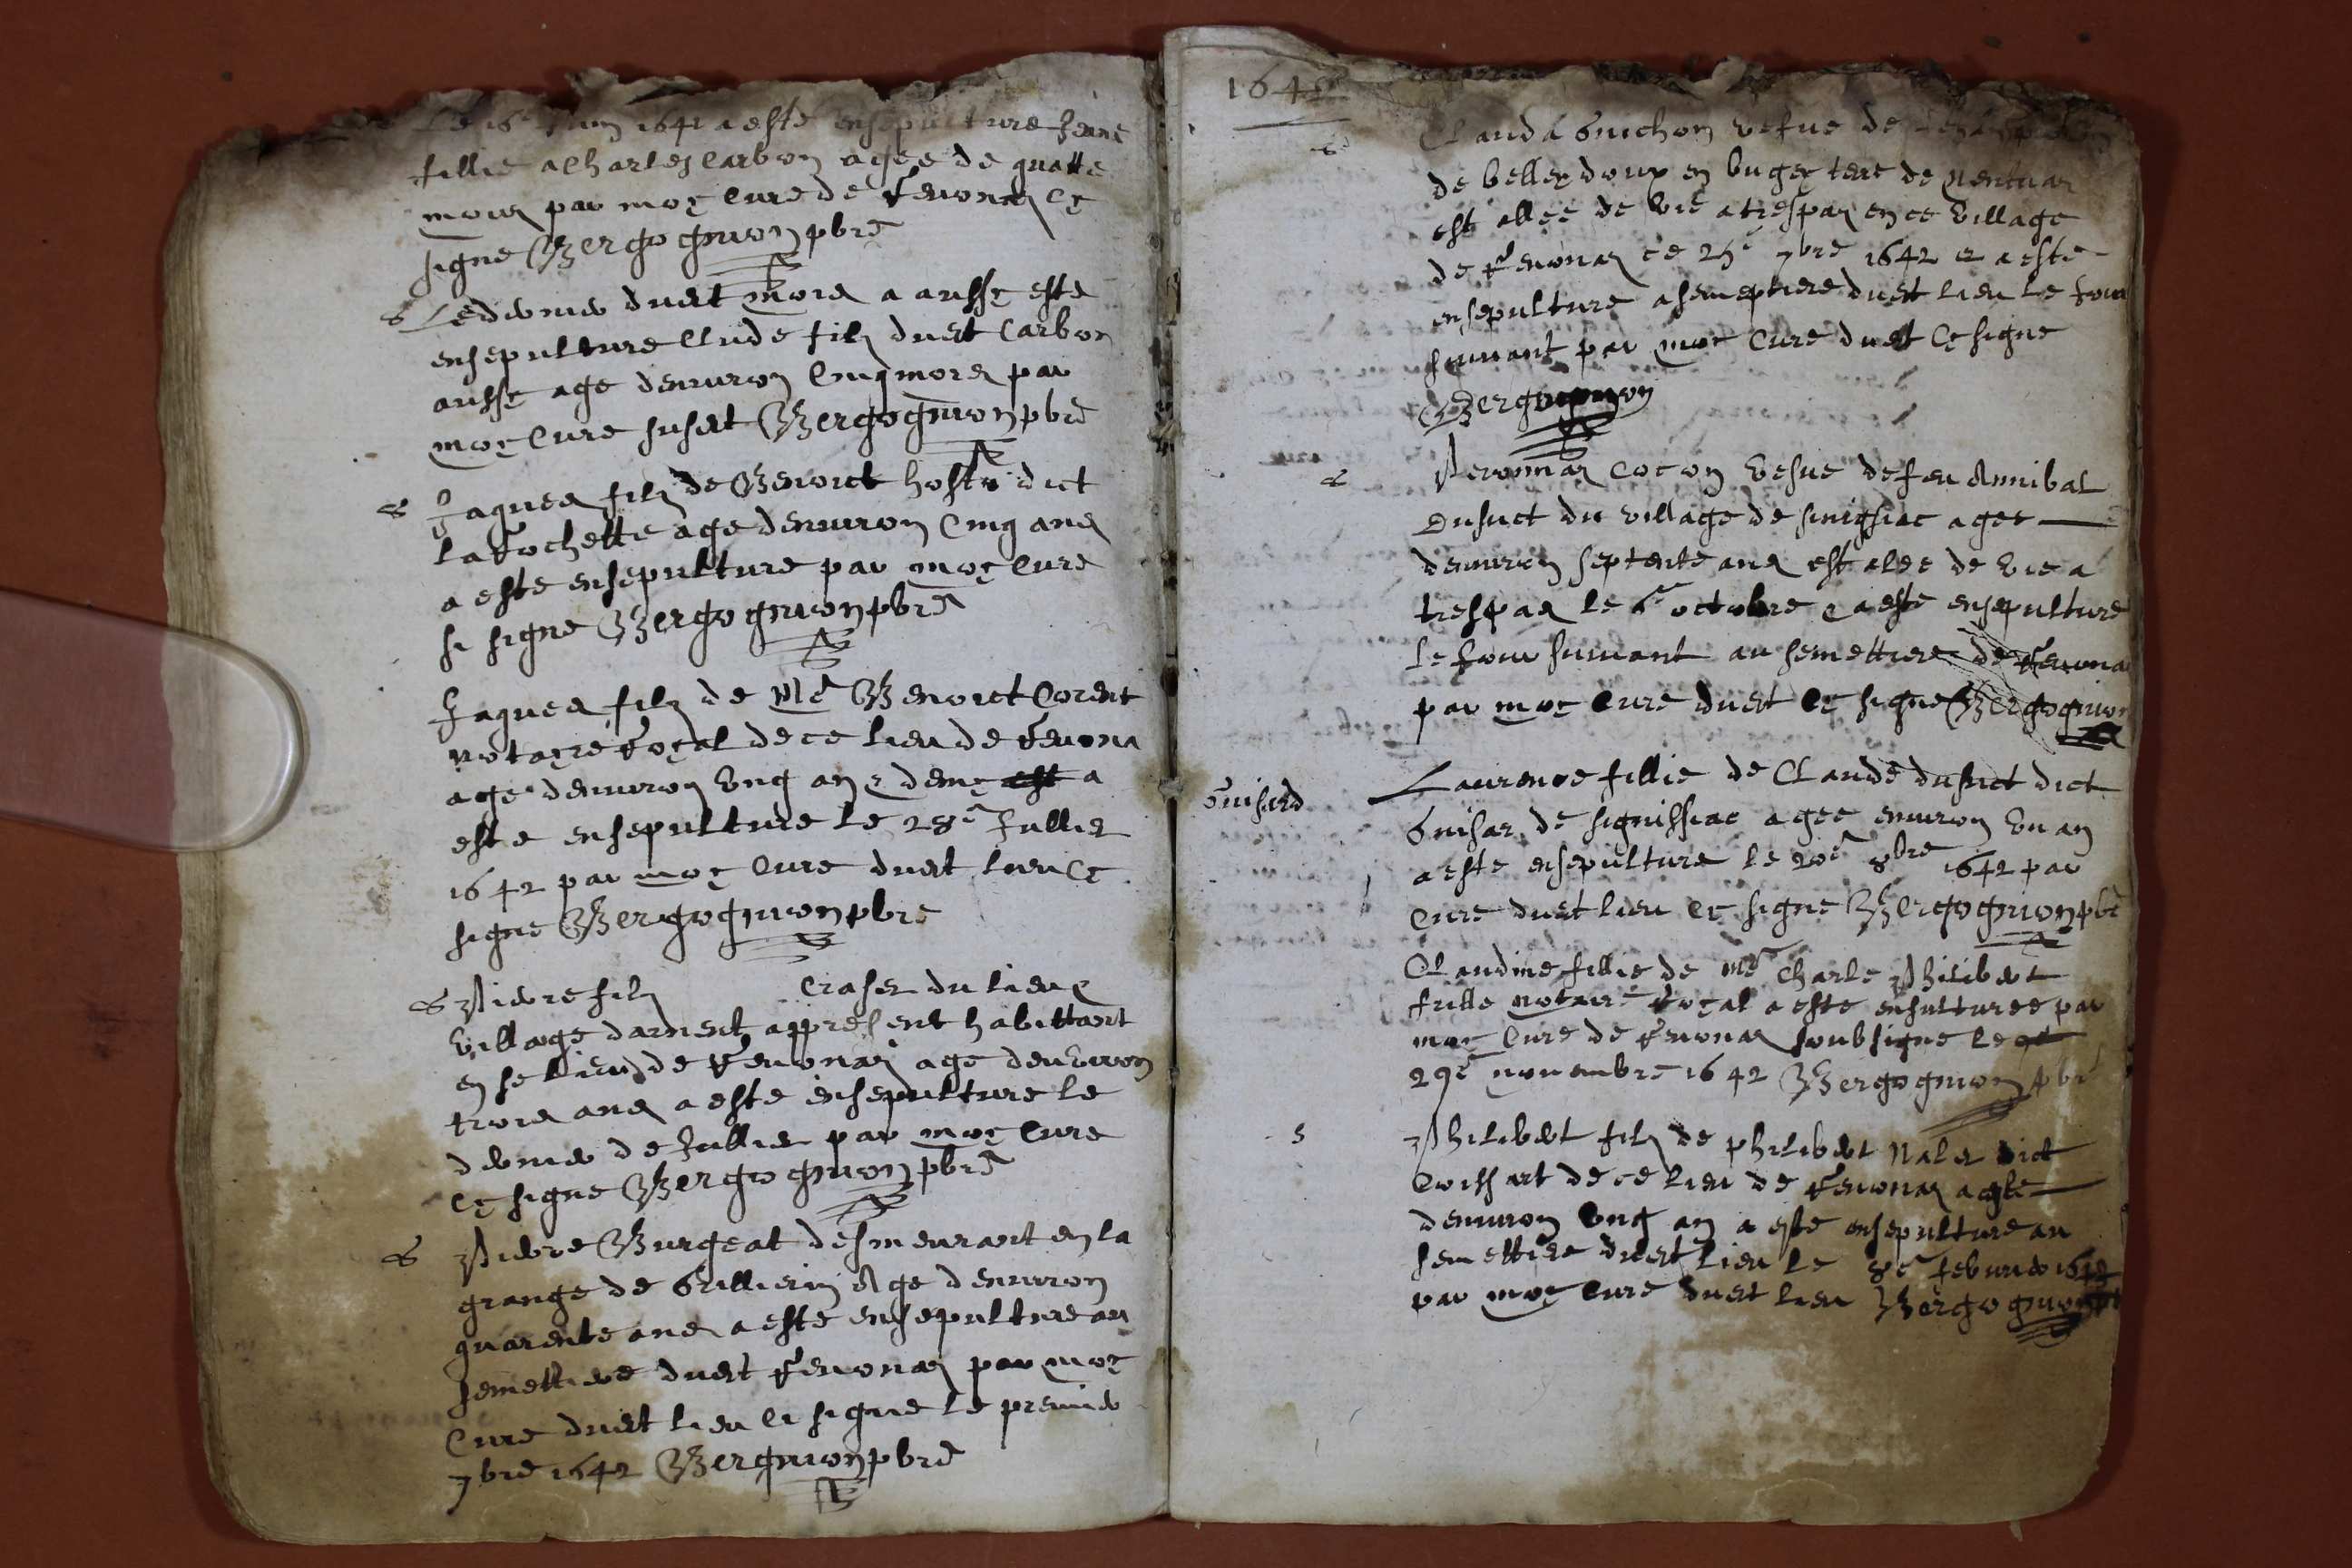 Le 16e Juin 1642 a esté ensepulture Jeane
fillie a Charles Carbon agée de quatte
mois par moy curé de Revonas cy
signé Bergognion pbre
S Le dernier duct mois a aussy esté
ensepulture Clude filz duct Carbon
aussy agé denviron cinq mois par
moy curé susdt Bergognion pbre
S Jaques filz de Benoict hoste dict
la Rochette agé denviron cinq ans
a esté ensepulturé par moy curé
si signé Bergognion pbre
Jaques filz de Me Benoict Corent
notayre Royal de ce lieu de Revona
agé denviron ung an & demy est a
esté ensepulture le 28e Jullier
1642 par moy curé duct lieu cy
signé Bergognion pbre
S Pierre filz Craser du lieu &
village darnent appresent habittant
en se lieu de Revonas agé denviron
trois ans a esté ensepulture le
dernier de Jullier par moy curé
cy signé Bergognion pbre
S Pierre Burgeat desmeurant en la
grange de Grillierin agé denviron
quarente ans a esté ensepulture au
semettiere duct Revonas par moy
curé duct lieu ci signé le premier
7bre 1642 Bergnion pbre
1642
S Clauda Guichon vefue de
de belleydoux en bugey terre de Nentuas
est allée de vie a trespas en ce village
de Revonas ce 25e 7bre 1642 & a esté
ensepulture a semeptiere duct lieu le Jour
suivant par moy curé duct cy signé
Bergognion
S Peronnas Cocon vesue de feu Annibal
Dusuct du village de sinigsiac agee
denviron septente ans est alee de vie a
trespas le 6e octobre & a esté ensepulture
le Jour suivant au semettiere de Revona
par moy curé duct cy signé Bergognion
Guisard
Laurence fillie de Claude dusuct dict
Guisar de signissiac agee environ un an
a esté ensepulture le 20e 8bre 1642 par
curé duct lieu cy signé Bergognion pbre
Claudine fillie de Me Charle Philibert
frille notaire Royal a esté ensulturee par
moy curé de Revonas soubsigné le
29e novembre 1642 Bergognion pbre
S Philibert filz de philibert Nalet dict
Coissart de ce lieu de Revonas agée
denviron ung an a esté ensepulture au
semettiere duct lieu le 8e febvrier 1642
par moy curé duct lieu Bergognion